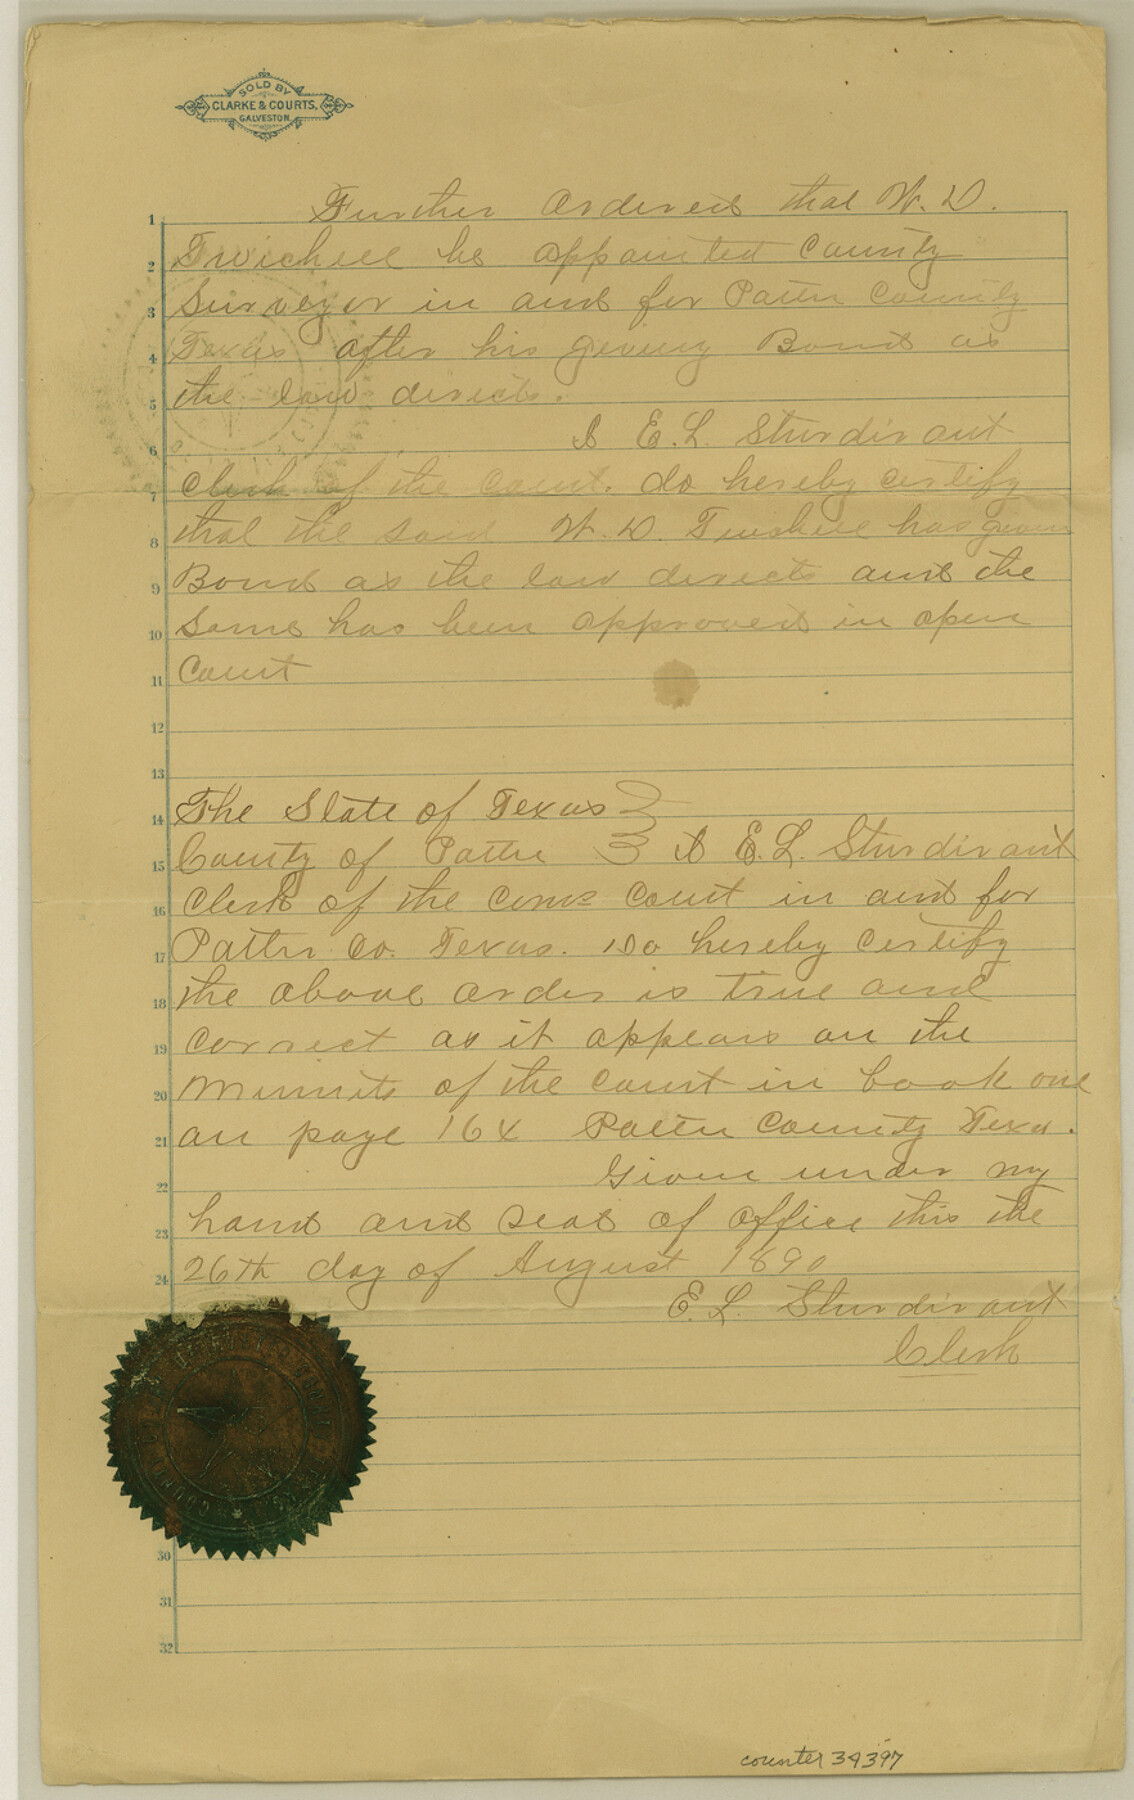 SOLD BY
CLARKE & COURTS,
GALVESTON
Further Ordered that W. D.
1
Twichell be appointed County
2
Surveyor in and for Potter County
3
Texas after his giving Bond as
4
the law directs.
5
I E. L. Sturdivant
6
Clerk of the Court. do hereby certify
7
that the said W. D. Twichell has given
8
Bond as the law directs and the
9
Same has been approved in open
10
Court
11
12
13
The State of Texas
14
County of Potter I E. L. Sturdivant
15
Clerk of the Coms Court in and for
16
Potter Co. Texas. Do hereby Certify
17
the above order is true and
18
correct as it appears on the
19
Minnits of the Court in book one
20
on page 164 Potter County Texas.
21
Given under my
22
hand and seal of office this the
23
26th day of August 1890
24
E. L. Sturdivant
Clerk
30
31
32
counter 34397